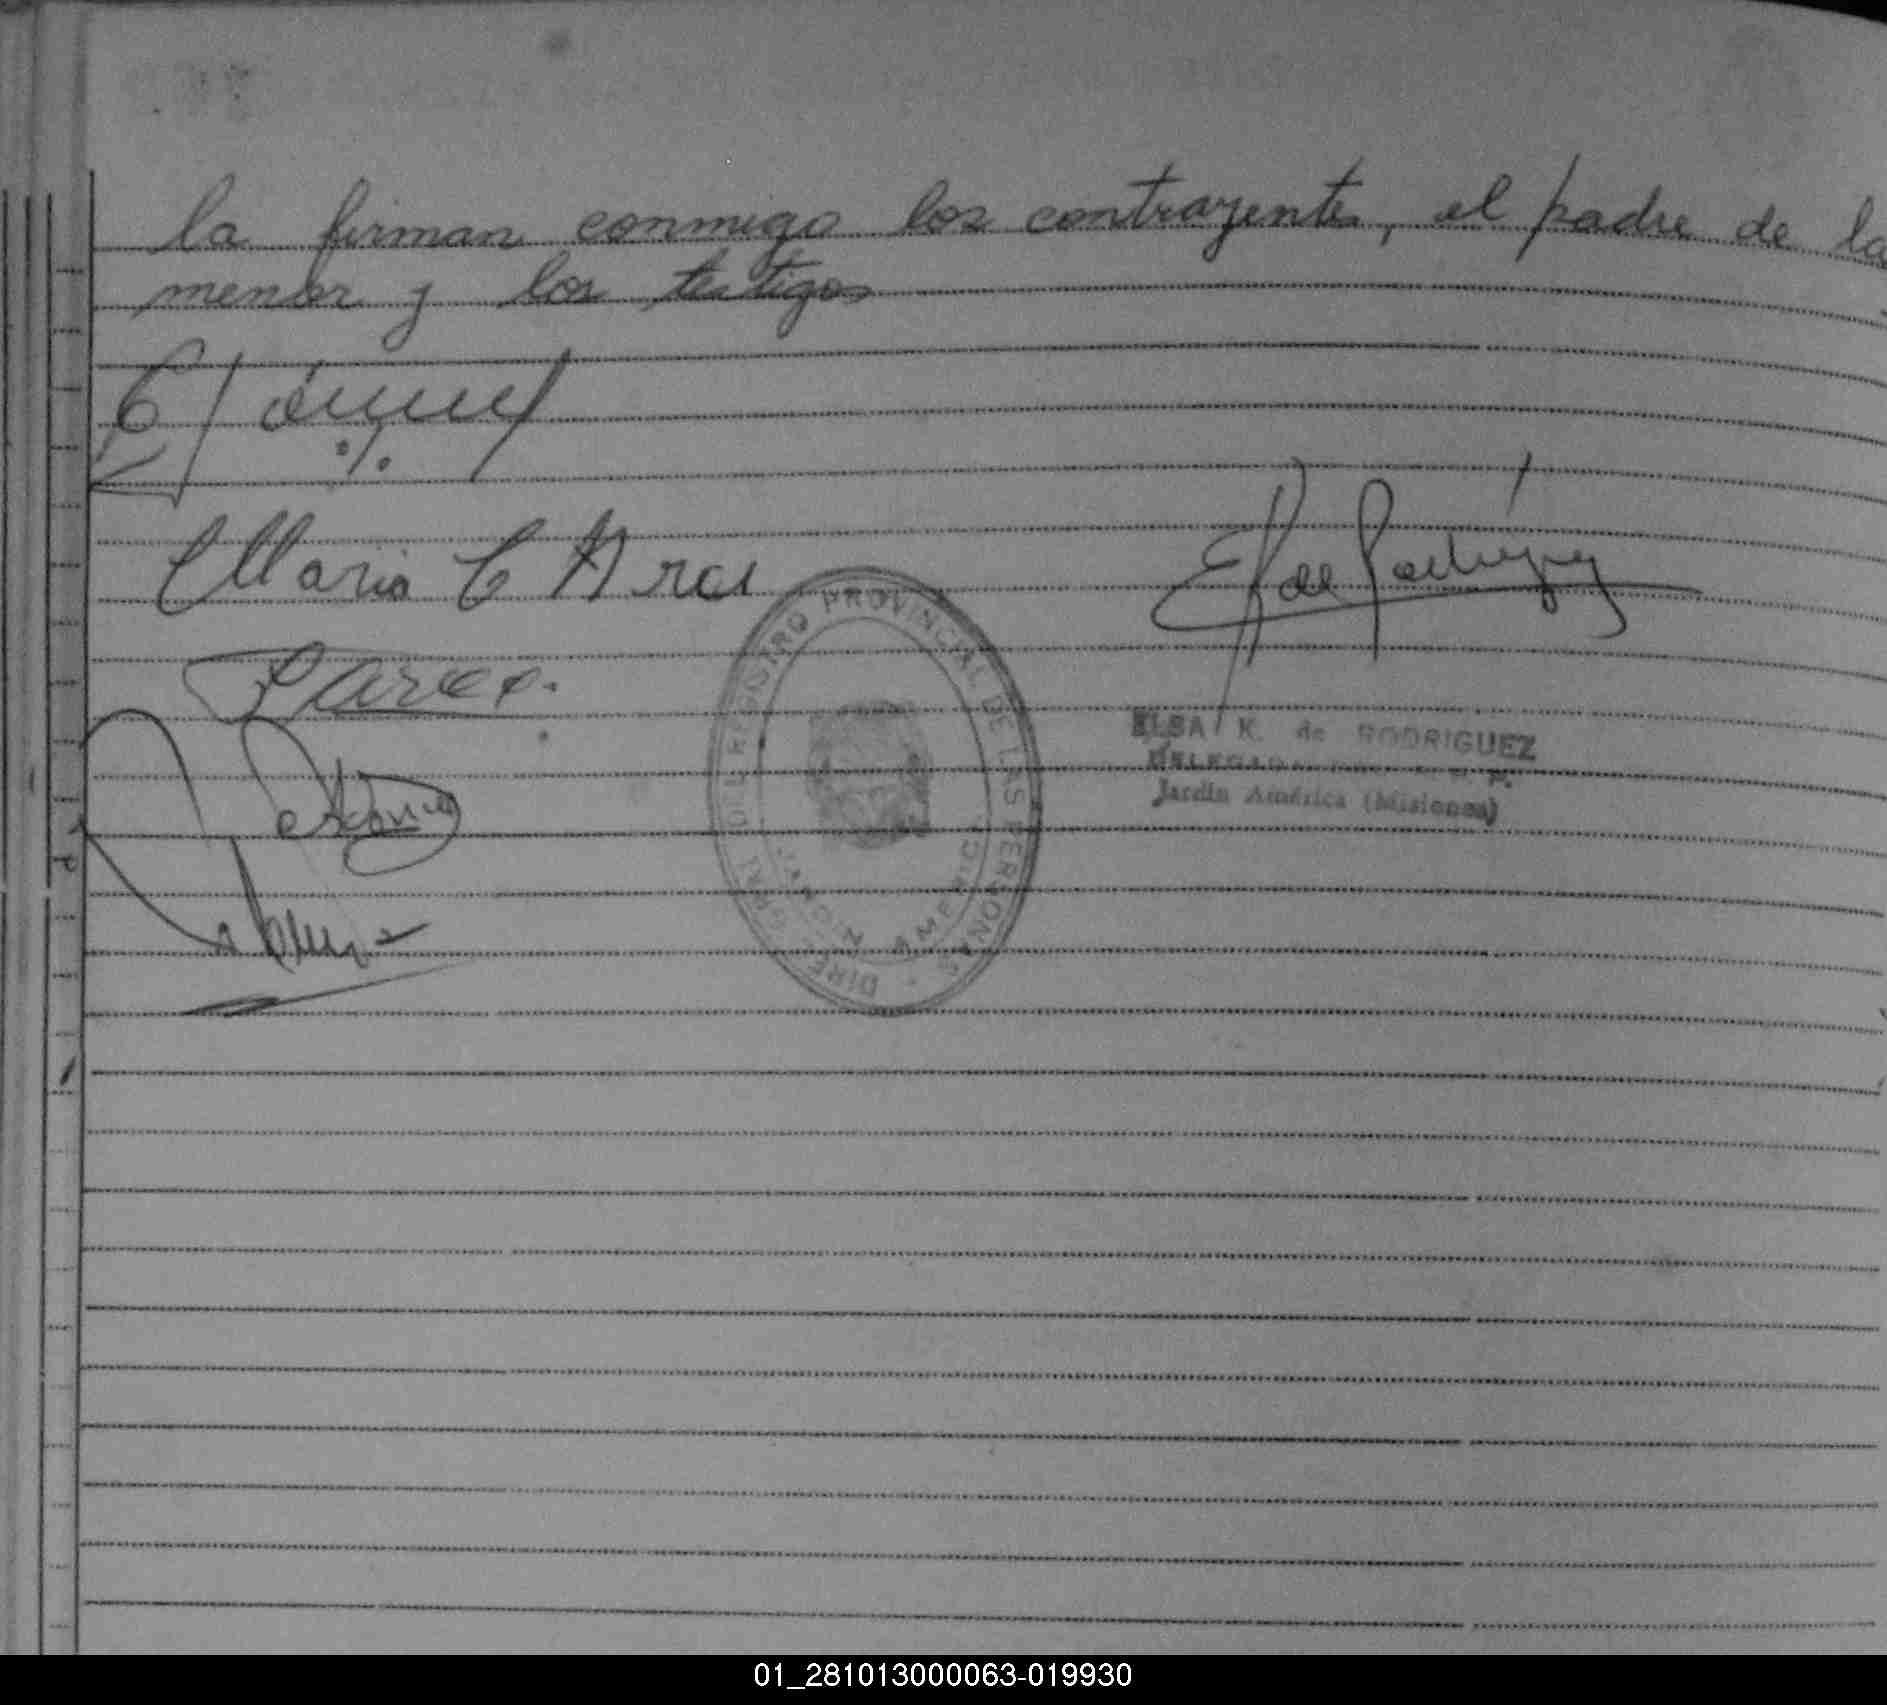 la firman conmigo los contrayentes, el padre de la
menor y los testigos
Maria C Arce
F Arce.
E K de Rodríguez
DIREC GRAL DEL REGISTRO PROVINCIAL DE LAS PERSONAS
JARDIN AMERICA
ELSA K. de RODRIGUEZ
DELEGADA
Jardín América (Misiones)
01_281013000063-019930